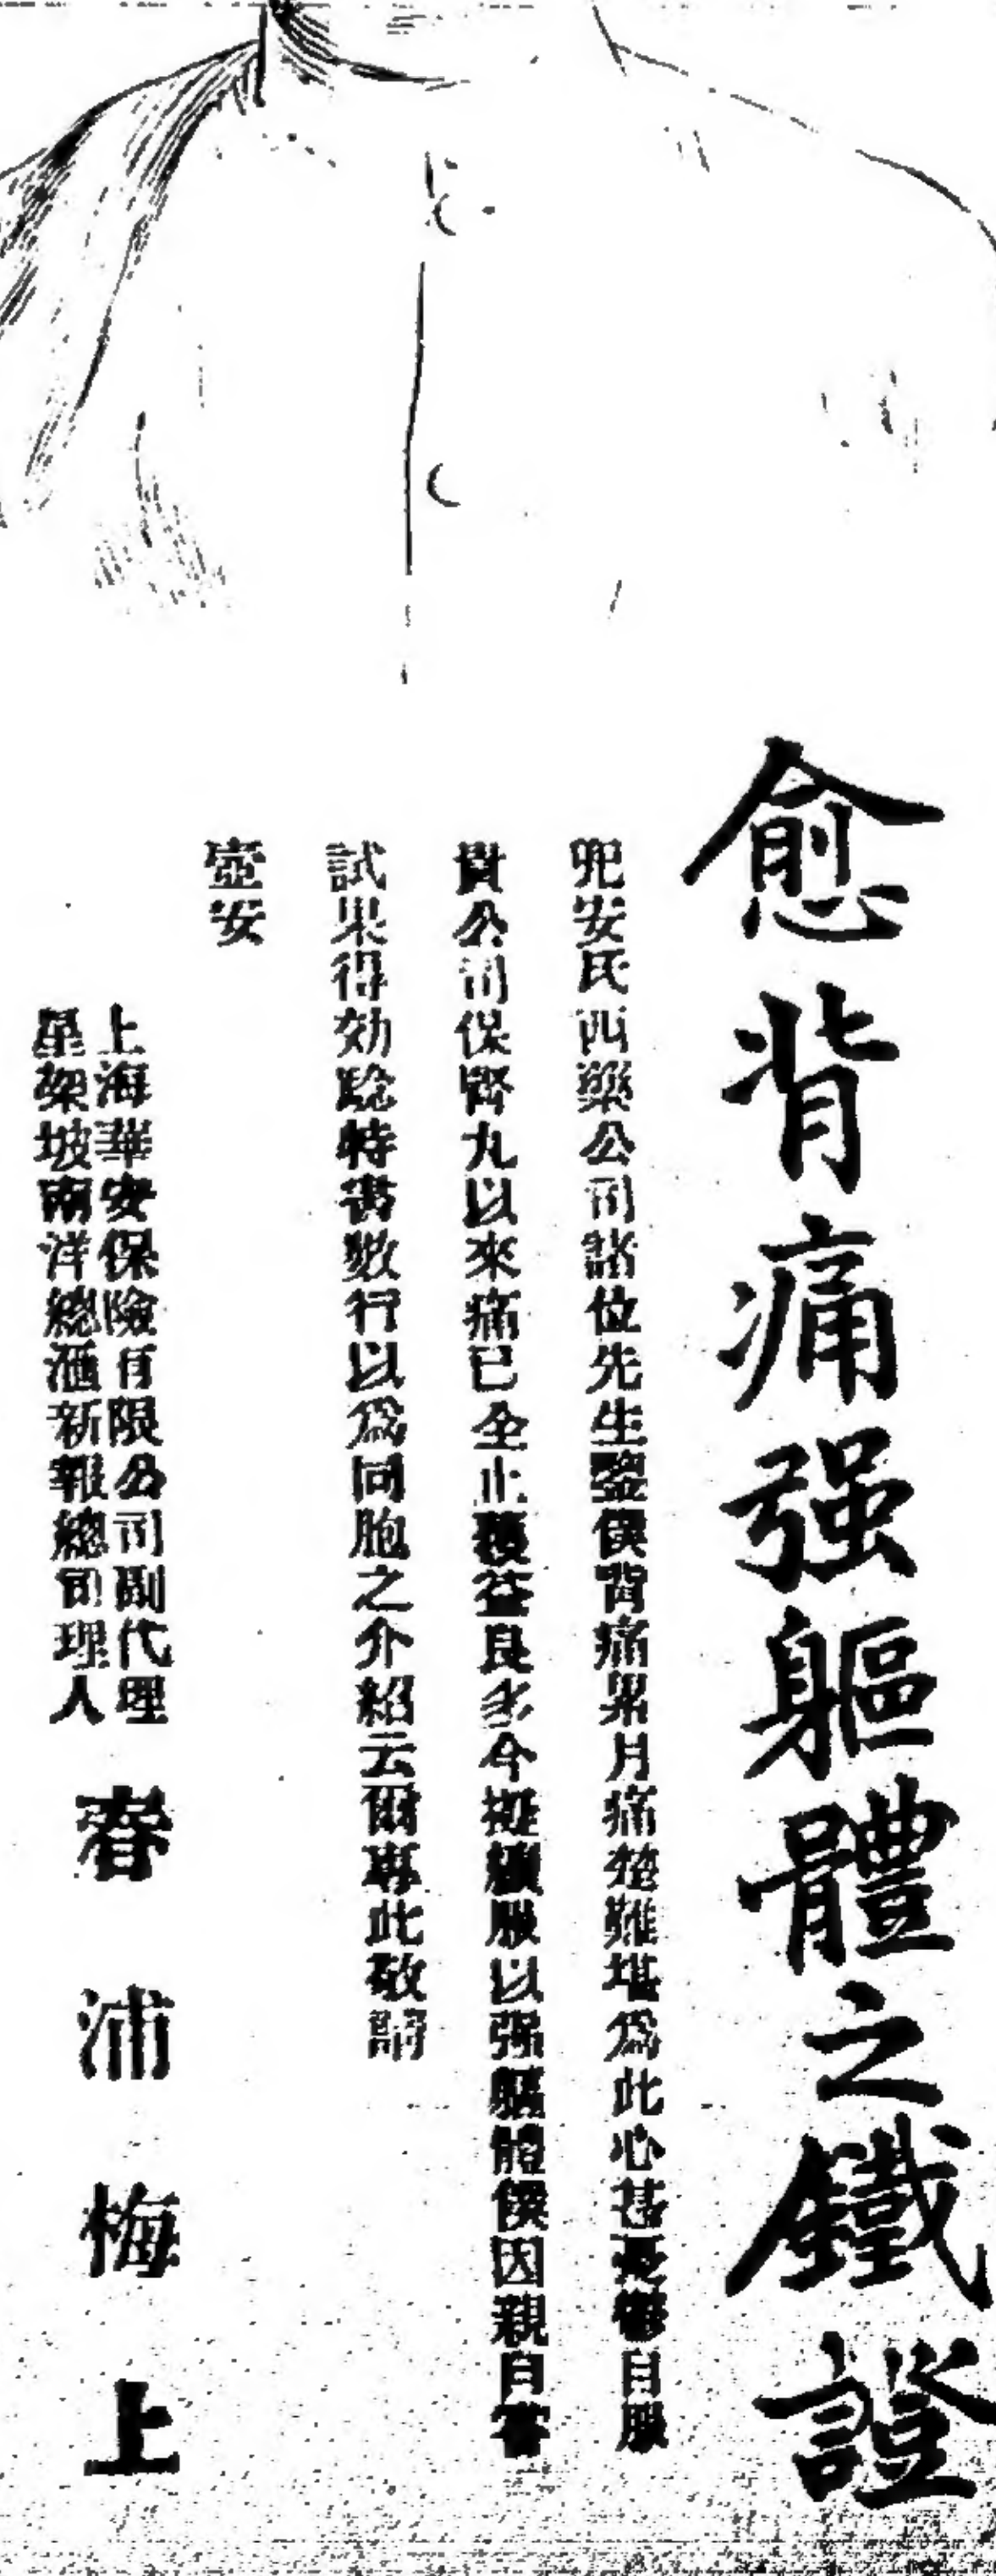 愈背痛强軀體之鐵證
兜安氏西藥公司諸位先生鑒僕背痛累月痛楚難堪爲此心甚憂鬱自服
貴公司保腎丸以來痛已全止獲益良多今擬續服以强軀體僕因親自嘗
試果得効驗特書數行以爲同胞之介紹云爾專此敬請
壺安
上海華安保險有限公司副代理
星架坡南洋總滙新報總司理人
春浦梅上